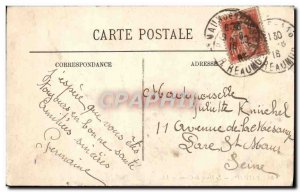 CARTE POSTALE
CORRESPONDANCE
ADRESSE
J'espère que vous êtes
toujours en bonne santé
Amitiés sincères
Germaine
Mademoiselle
Juliette
11 Avenue de
Parc St Maur
Seine
RÉAUMUR